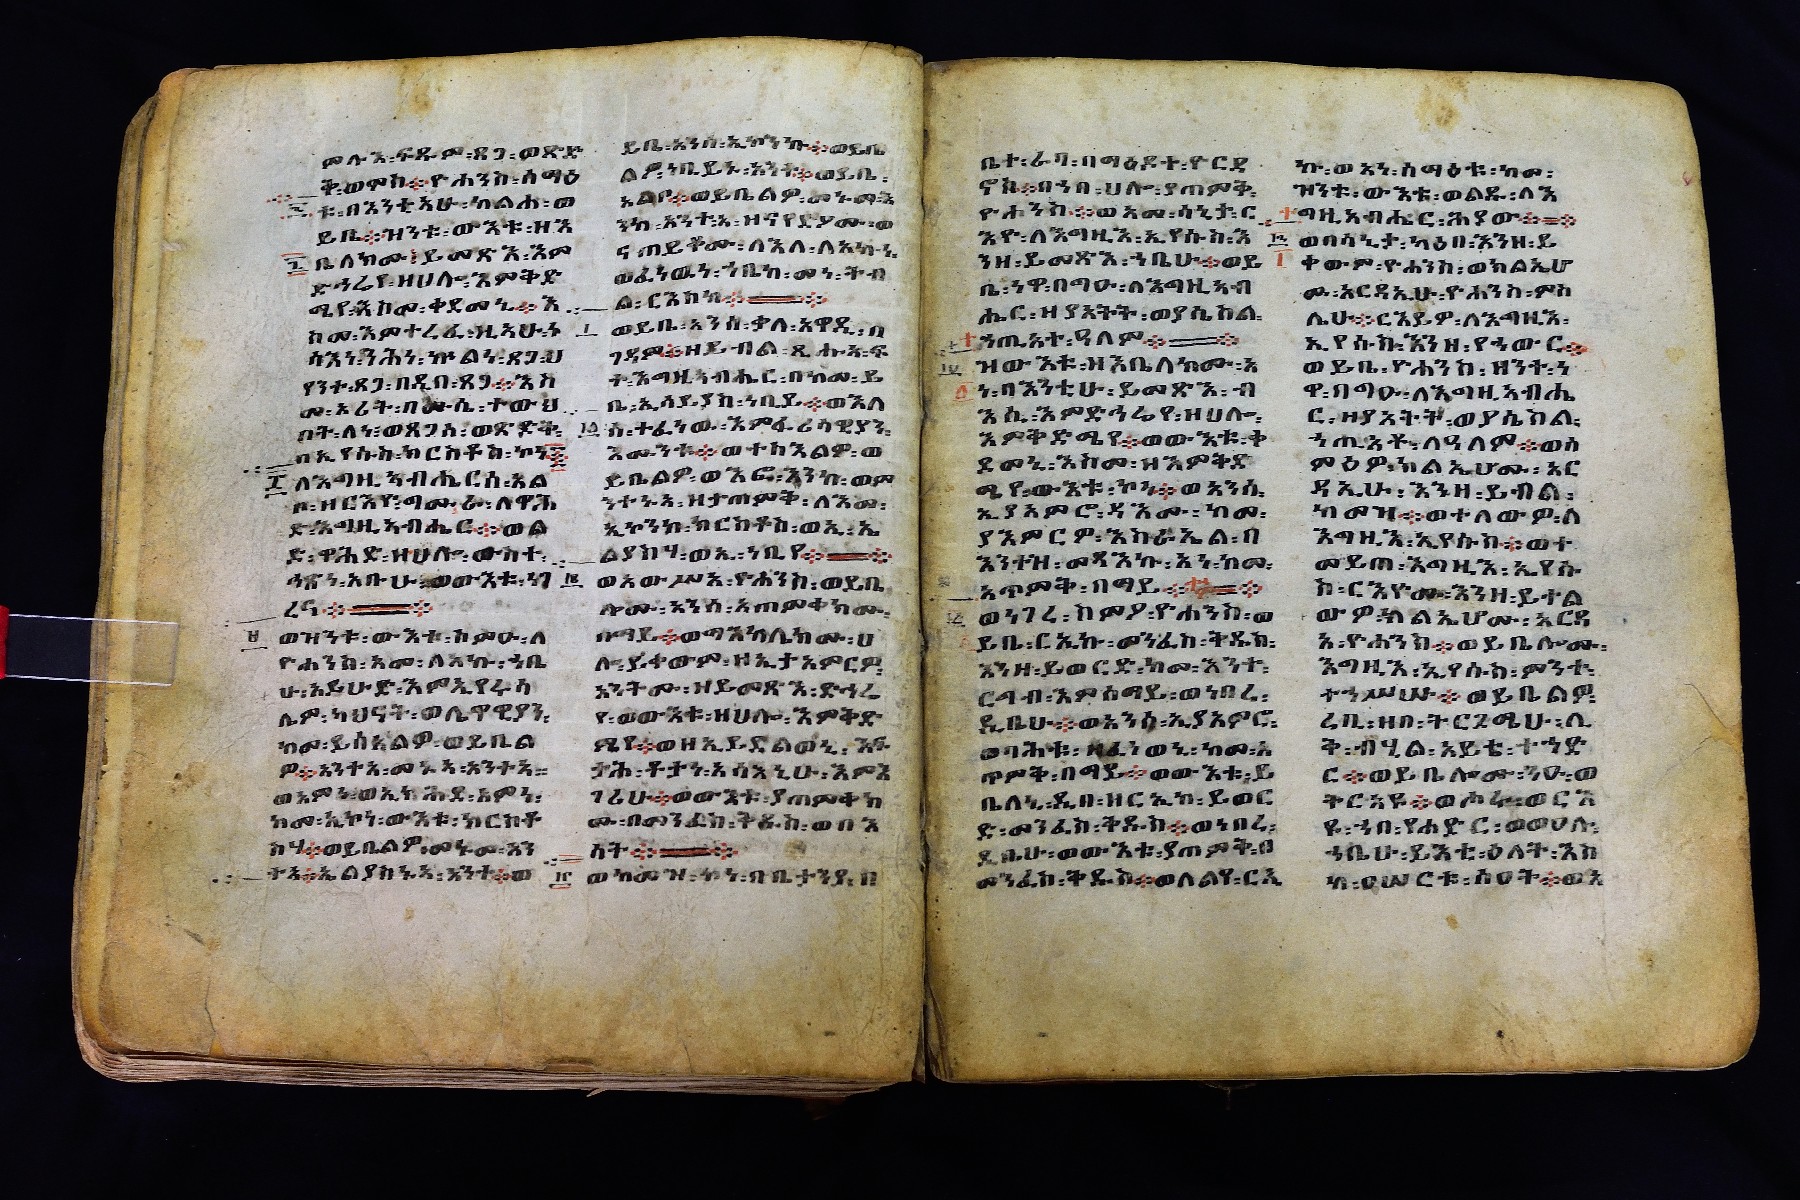 ምሉእ፡ፍጹም፡ጸጋ፡ወጽድ
ቅ፡ወሞከ፨ዮሐንስ፡ሰማዕ
ቱ፡በእንቲአሁ፡ከልሐ፡ወ
ይቤ፨ዝንቱ፡ውእቱ፡ዘእ
ቤለክሙ፡ይመጽእ፡እም
ድኅሬየ፡ዘሀሎ፡እምቅድ
ሜየ፡እስመ፡ቀደመኒ፨እ
ስመ፡እምተረፈ፡ዚአሁ፡ነ
ሣእነ፡ንሕነ፡ኵልነ፡ጸጋ፡ህ
የንተ፡ጸጋ፡በዲበ፡ጸጋ፨እስ
መ፡ኦሪት፡በሙሴ፡ተውህ
በት፡ለነ፡ወጸጋሰ፡ወጽድቅ፡
በኢየሱስ፡ክርስቶስ፡ኮነ፨
ለእግዚአብሔርሰ፡አል
ቦ፡ዘርእየ፡ግሙራ፡ለዋሕ
ድ፡እግዚአብሔር፨ወል
ድ፡ዋሕድ፡ዘሀሎ፡ውስተ፡
ኅፅነ፡አቡሁ፡ውእቱ፡ነገ
ረና፨
ወዝንቱ፡ውእቱ፡ስምዑ፡ለ
ዮሐንስ፡አመ፡ለአኩ፡ኀቤ
ሁ፡አይሁድ፡እምኢየሩሳ
ሌም፡ካህናተ፡ወሌዋዊያነ፡
ከመ፡ይሰአልዎ፡ወይቤል
ዎ፨አንተአ፡መኑአ፡አንተአ፡
ወአምነ፡ወኢክሕደ፡አምነ፡
ከመ፡ኢኮነ፡ውእቱ፡ክርስቶ
ስሃ፨ወይቤልዎ፡መኑመ፡አን
ተአ፨ኤልያስኑአ፡አንተ፨ወ
ይቤ፡አንሰ፡ኢኮንኩ፨ወይቤ
ልዎ፡ነቢይኑ፡አንተ፨ወይቤ፡
አልቦ፨ወይቤልዎ፡መኑመ፡እ
ንከ፡አንተአ፡ዘናየይድዖሙ፡ወ
ናጠይቆሙ፡ለእለ፡ለአኩነ፡
ወፈነዉነ፡ኀቤከ፡መነ፡ትብ
ል፡ርእስከ፨
ወይቤ፡አንሰ፡ቃለ፡አዋዲ፡በ
ገዳም፨ዘይብል፡ጺሑአ፡ፍ
ኖተ፡እግዚአብሔር፡በከመ፡ይ
ቤ፡ኢሳይያስ፡ነቢይ፨ወእለ
ሰ፡ተፈነዉ፡እምፈሪሳዊያን፡
እሙንቱ፨ወተስእልዎ፡ወ
ይቤልዎ፡ወእፎ፡እንከ፡ወም
ንተኑአ፡ዘታጠምቅ፡ለእመ፡
ኢኮንከ፡ክርስቶስ፡ወኢ፡ኤ
ልያስሃ፡ወኢ፡ነቢየ፨
ወአውሥአ፡ዮሐንስ፡ወይቤ
ሎሙ፡አንሰ፡አጠምቀክሙ፡
በማይ፨ወማእከሌክሙ፡ሀ
ሎ፡ይቀውም፡ዘኢታአምርዎ፡
አንትሙ፡ዘይመጽእ፡ድኅሬ
የ፡ወውእቱ፡ዘሀሎ፡እምቅድ
ሜየ፨ወዘኢይደልወኒ፡እፍ
ታሕ፡ቶታነ፡አሳእኒሁ፡እምእ
ገሪሁ፨ወውእቱ፡ያጠምቀክ
ሙ፡በመንፈስ፡ቅዱስ፡ወበእ
ሳት፨
ወከመዝ፡ኮነ፡በቢታንያ፡በ
ቤተ፡ራባ፡በማዕዶተ፡ዮርዳ
ኖስ፨በኀበ፡ሀሎ፡ያጠምቅ፡
ዮሐንስ፨ወአመ፡ሳኒታ፡ር
እዮ፡ለእግዚእ፡ኢየሱስ፡እ
ንዘ፡ይመጽእ፡ኀቤሁ፨ወይ
ቤ፡ነዋ፡በግዑ፡ለእግዚአብ
ሔር፡ዘያአትት፡ወያሴስል፡
ኃጢአተ፡ዓለም፨
ዝውእቱ፡ዘእቤለክሙ፡አ
ነ፡በእንቲሁ፡ይመጽእ፡ብ
እሲ፡እምድኅሬየ፡ዘሀሎ፡
እምቅድሜየ፨ወውእቱ፡ቀ
ደመኒ፡እስመ፡ዘእምቅድ
ሜየ፡ውእቱ፡ኮነ፨ወአንሰ፡
ኢያአምሮ፡ዳእሙ፡ከመ፡
ያእምርዎ፡እስራኤል፡በ
እንተዝ፡መጻእኩ፡አነ፡ከመ፡
አጥምቅ፡በማይ፨
ወነገረ፡ስምዖ፡ዮሐንስ፡ወ
ይቤ፡ርኢኩ፡መንፈስ፡ቅዱስ፡
እንዘ፡ይወርድ፡ከመ፡እንተ፡
ርግብ፡እምሰማይ፡ወነበረ፡
ዲቤሁ፨ወአንሰ፡ኢያአምሮ፡
ወባሕቱ፡ዘፈነወኒ፡ከመ፡አ
ጥምቅ፡በማይ፨ወውእቱ፡ይ
ቤለኒ፡ዲበ፡ዘርኢከ፡ይወር
ድ፡መንፈስ፡ቅዱስ፨ወነበረ፡
ዲቤሁ፡ወውእቱ፡ያጠምቅ፡በ
መንፈስ፡ቅዱስ፨ወለልየ፡ርኢ
ኩ፡ወአነ፡ሰማዕቱ፡ከመ፡
ዝንቱ፡ውእቱ፡ወልዱ፡ለእ
ግዚአብሔር፡ሕያው፨
ወበሳኒታ፡ካዕበ፡እንዘ፡ይ
ቀውም፡ዮሐንስ፡ወክልኤሆ
ሙ፡አርዳኢሁ፡ዮሐንስ፡ምስ
ሌሁ፨ርእይዎ፡ለእግዚእ፡
ኢየሱስ፡እንዘ፡የኀውር፨
ወይቤ፡ዮሐንስ፡ዝንተ፡ነ
ዋ፡በግዑ፡ለእግዚአብሔ
ር፡ዘያአትት፡ወያሴስል፡
ኀጢአቶ፡ለዓለም፨ወሰ
ምዕዎ፡ክልኤሆሙ፡አር
ዳኢሁ፡እንዘ፡ይብል፡
ከመዝ፨ወተለውዎ፡ለ
እግዚእ፡ኢየሱስ፨ወተ
መይጠ፡እግዚእ፡ኢየሱ
ስ፡ርእዮሙ፡እንዘ፡ይተል
ውዎ፡ክልኤሆሙ፡አርዳ
አ፡ዮሐንስ፨ወይቤሎሙ፡
እግዚእ፡ኢየሱስ፡ምንተ፡
ተኀሥሡ፨ወይቤልዎ፡
ረቢ፡ዘበ፡ትርጓሜሁ፡ሊ
ቅ፡ብሂል፡አይቴ፡ተኀድ
ር፨ወይቤሎሙ፡ንዑ፡ወ
ትርአዩ፨ወሖሩ፡ወርእ
ዩ፡ኀበ፡የሐድር፡ወወዐሉ፡
ኀቤሁ፡ይእቲ፡ዕለት፡እስ
ከ፡ዐሠርቱ፡ሰዐት፨ወእ